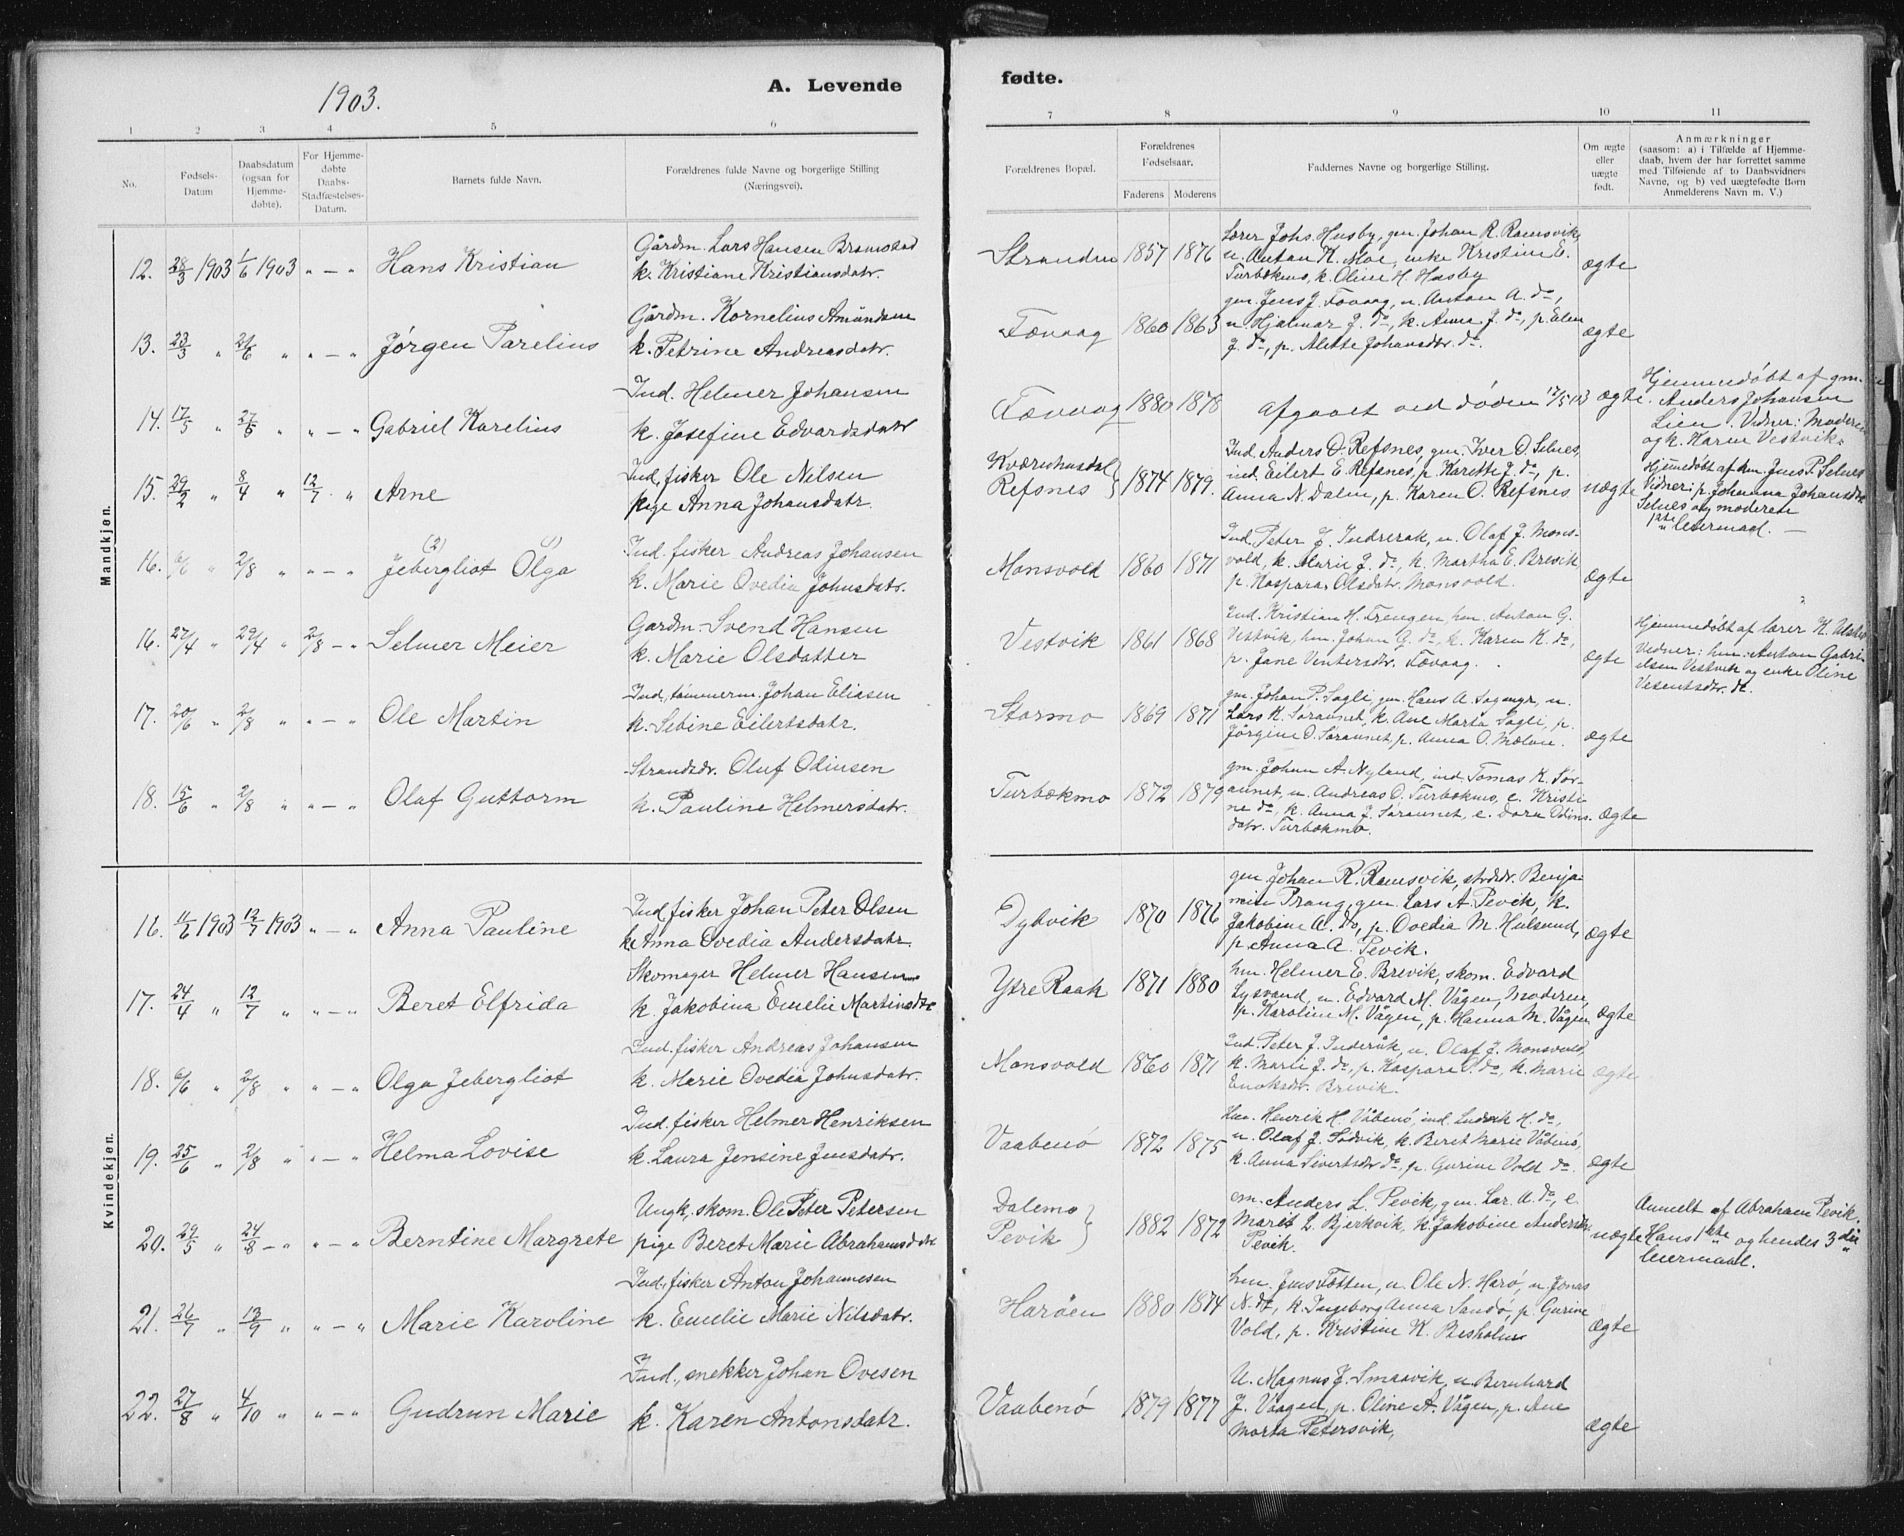 1903.
A. Levende fødte.
1 2 3 4 5 6 7 8 9 10 11
No.
Fødsels-
Datum
Daabsdatum
(ogsaa for
Hjemme-
døbte).
For Hjemme-
døbte
Daabs-
Stadfæstelses-
Datum.
Barnets fulde Navn.
Forældrenes fulde Navne og borgerlige Stilling
(Næringsvei).
Forældrenes Bopæl.
Forældrenes
Fødselsaar.
Faderens Moderens
Faddernes Navne og borgerlige Stilling.
Om ægte
eller
uægte
født.
Anmærkninger
(saasom: a) i Tilfælde af Hjemme-
daab, hvem der har forrettet samme
med Tilføiende af to Daabsvidners
Navne, og b) ved uægtefødte Børn
Anmelderens Navn m. V.)
Mandkjøn.
12. 28/3 1903 1/6 1903 " — " Hans Kristian
Gårdm. Lars Hansen Bramstad
k. Kristiane Kristiansdatr.
Stranden 1857 1876
Lærer Johs. Husby, gm. Johan R. Ramsvik,
u. Anton K. Moe, enke Kristine E.
Turbekmo, k. Oline H. Husby
ægte
13. 23/3 " 21/6 " " — " Jørgen Parelius
Gårdm. Kornelius Amundsen
k. Petrine Andreasdatr.
Tævaag 1860 1863
gm. Jens J. Tævaag, u. Anton A. do,
u. Hjalmar J. do, k. Anna J. do, p. Elen
J. do, p. Alette Johansdtr. do.
ægte
14. 17/5 " 27/6 " " — " Gabriel Karelius
Ind. Helmer Johansen
k. Josefine Edvardsdatr
Tævaag 1880 1878
afgaaet ved døden 17/5 03
ægte
Hjemmedøbt af gm.
Anders Johansen
Lien. Vidner: Moderen
og k. Karen Vestvik.
15. 29/2 " 8/4 " 12/7 " Arne
Ind. fisker Ole Nilsen
pige Anna Johansdatr.
Kværnhusdal
Refsnes } 1874 1879.
Ind. Anders O. Refsnes, gm. Iver O. Selnes,
ind. Eilert E. Refsnes, p. Karette J. do, p.
Anna N. Dalen, p. Karen O. Refsnes
uægte
Hjemedøbt af hm. Jens P. Selnes
Vidner: p. Johanna Johansdtr
Selnes og moderen
1ste leiermaal. —
16. 6/6 " 2/8 " " — " (2) Jebergliot (1) Olga
Ind. fisker Andreas Johansen
k. Marie Ovedia Johnsdatr.
Monsvold 1860 1871
Ind. Peter J. Inderaak, u. Olaf J. Mons-
vold, k. Marie J. do, k. Martha E. Brevik,
p. Kaspara Olsdatr. Monsvold.
ægte
16. 27/4 " 29/4 " 2/8 — " Selmer Meier
Gårdm. Svend Hansen
k. Marie Olsdatter
Vestvik 1861 1868
Ind. Kristian H. Trengen, hm. Anton G.
Vestvik, hm. Johan G. do, k. Karen K. do,
p. Jane Ventersdtr. Tævaag.
ægte
Hjemmedøbt af lærer K.
Vidner: hm. Anton Gabri-
elsen Vestvik og enke Oline
Vesentsdtr. do.
17. 20/6 " 2/8 " " — " Ole Martin
Ind. tømmerm. Johan Eliasen
k. Sebine Eilertsdatr.
Stormo 1869 1871
gm. Johan P. Sagli, gm. Hans A. Sagmyr, u.
Lars K. Søraunet, k. Ane Marta Sagli, p.
Jørgine O. Søraunet, p. Anna O. Mælan.
ægte
18. 15/6 " 2/8 " " — " Olaf Guttorm
Strandsdr. Oluf Odinsen
k. Pauline Helmersdatr.
Turbekmo 1872 1879
gm. Johan A. Nyland, ind. Tomas K. Sør-
aunet, u. Andreas O. Turbekmo, e. Kristi-
ne do, k. Anna J. Søraunet, e. Dora Odins-
datr. Turbekmo.
ægte
Kvindekjøn.
16. 11/6 1903 12/7 1903 " — " Anna Pauline
Ind. fisker Johan Peter Olsen
k. Anna Ovedia Andersdatr.
Dybvik 1870 1876
gm. Johan R. Ramsvik, strdsdr. Benja-
min Prang, gm. Lars A. Pevik, k.
Jakobine A. do, p. Ovedia M. Hulsund,
p. Anna A. Pevik.
ægte
17. 24/4 " 12/7 " " — " Beret Elfrida
Skomager Helmer Hansen
k. Jakobina Emelie Martinsdtr.
Ytre Raak 1871 1880
hm. Helmer E. Brevik, skom. Edvard
Lysvand, u. Edvard M. Vågen, Moderen,
p. Karoline M. Vågen, p. Hanna M. Vågen
ægte
18. 6/6 " 2/8 " " — " Olga Jebergliot
Ind. fisker Andreas Johansen
k. Marie Ovedia Johnsdatr.
Monsvold 1860 1871
Ind. Peter J. Inderåk, u. Olaf J. Monsvold,
k. Marie J. do, p. Kaspara O. do, k. Marie
Enoksdtr. Brevik.
ægte
19. 25/6 " 2/8 " " — " Helma Lovise
Ind. fisker Helmer Henriksen
k. Laura Jensine Jensdatr.
Vaabenø 1872 1875
hm. Henrik H. Våbenø, ind. Ludvik H. do,
u. Olaf J. Sødvik, k. Beret Marie Våbenø,
k. Anna Sivertsdtr do, p. Gurine Vold do.
ægte
20. 29/5 " 24/8 — " " — " Berntine Margrete
Ungk. skom. Ole Peter Petersen
pige Beret Marie Abrahamsdtr
Dalemo
Pevik } 1882 1872
em. Anders L. Pevik, gm. Lar A. do, e.
Marit L. Bjerkvik, k. Jakobine Andersdtr
Pevik.
uægte
Anmelt af Abraham Pevik.
Hans 1ste og hendes 3die
leiermaal.
21. 26/7 " 13/9 " " — " Marie Karoline
Ind. fisker Anton Johannesen
k. Emelie Marie Nilsdatr.
Harøen 1880 1874
hm. Jens Totten, u. Ole N. Harø, u. Jonas
N. do, k. Ingeborg Anna Sandø, p. Gurine
Vold, p. Kristine K. Besholm
ægte
22. 27/8 " 4/10 " " — " Gudrun Marie
Ind., snekker Johan Ovesen
k. Karen Antonsdatr.
Vaabenø 1879 1877
U. Magnus J. Smaavik, u. Bernhard
J. Vågen, p. Oline A. Vågen, p. Ane
Marta Petersvik,
ægte